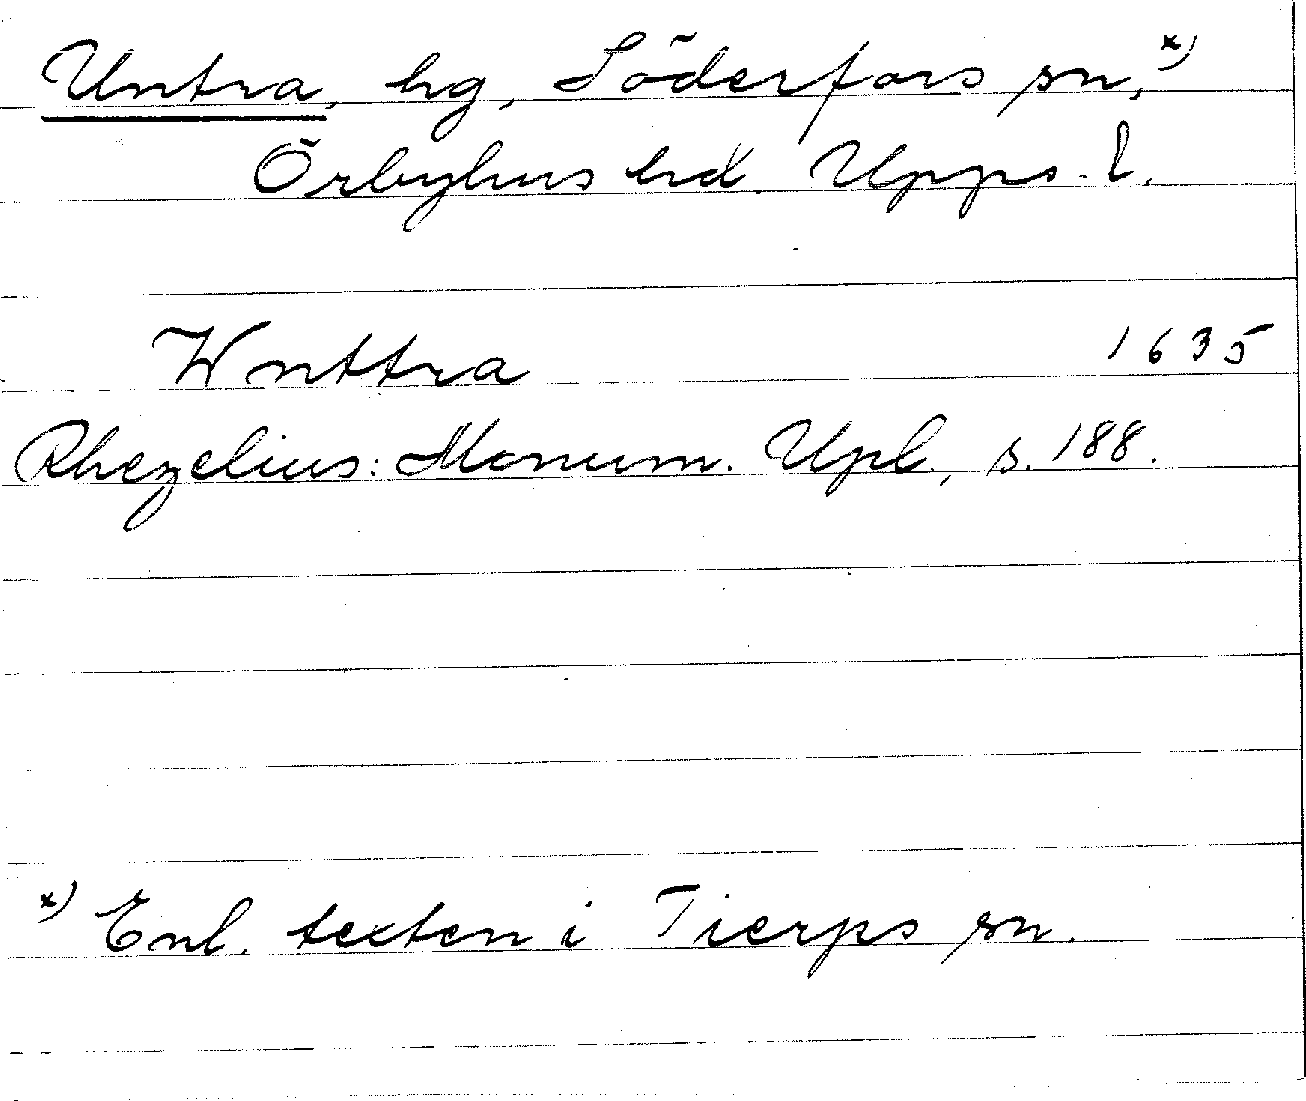 Untra, hg, Söderfors sn, x)
Örbyhus hd. Upps. l.
Wnttra 1635
Rhezelius: Monum. Upl., s. 188.
x) Enl. texten i Tierps sn.